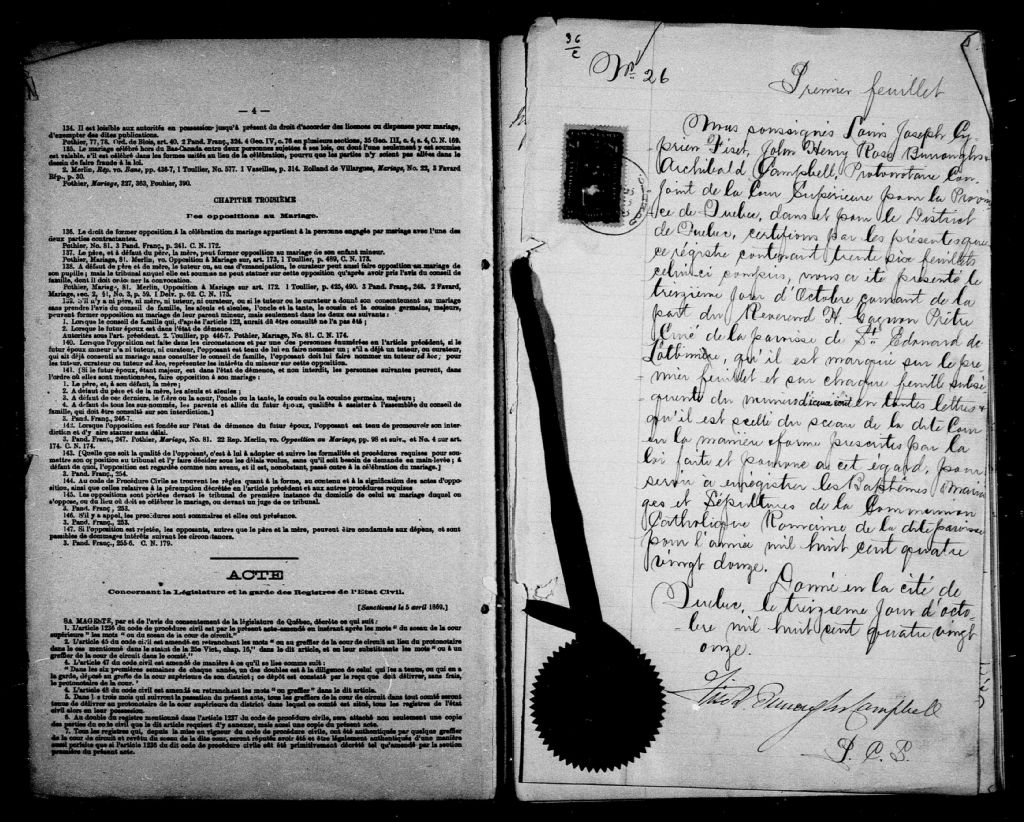 — 4 —
134. Il est loisible aux autorités en possession jusqu'à présent du droit d'accorder des licences ou dispenses pour mariage,
d'exempter des dites publications.
Pothier, 77, 78. Ord. de Blois, art. 40. 2 Pand. Franç., 324. 4 Geo. IV, c. 76 en plusieurs sections, 35 Geo. III, c. 4, s. 4, C. N. 169.
135. Le mariage célébré hors du Bas-Canada entre deux personnes sujettes à ses lois, ou dont l'une seulement y est soumise
est valable, s'il est célébré dans les formes usitées au lieu de la célébration, pourvu que les parties n'y soient pas allées dans le
dessin de faire fraude à la loi.
2. Merlin, Rép. vo. Bans, pp. 436-7, 1 Toullier, No. 577. 1 Vazeilles, p. 314. Rolland de Villargues, Mariage, No. 22, 3 Favard
Rép., p. 30.
Pothier, Mariage, 327, 363, Pouhier, 390.
CHAPITRE TROISIÈME
Des oppositions au Mariage.
136. Le droit de former opposition à la célébration du mariage appartient à la personne engagée par mariage avec l'une des
deux parties contractantes.
Pothier, No. 81. 3 Pand. Franç., p. 241. C. N. 172.
137. Le père, et à défaut du père, la mère, peut former opposition au mariage de son enfant mineur.
Pothier, Mariage, 81. Merlin, vo. Opposition à Mariage sur, art. 173, 1 Toullier, p. 489, C. N. 173.
138. A défaut de père et de mère, le tuteur ou, au cas d'émancipation, le curateur peut aussi faire opposition au mariage de
son pupille; mais le tribunal auquel elle est soumise ne peut statuer sur cette opposition qu'après avoir pris l'avis du conseil de
famille, dont il doit ordonner la convocation.
Pothier, Mariage, 81. Merlin, Opposition à Mariage sur art. 172. 1 Toullier, pp. 425, 490. 3 Pand. Franç., 248. 2 Favard,
Mariage, sec. 2, §1, No. 3, p. 59. 1 Delv. p. 62. C. N. 175.
139. S'il n'y a ni père, ni mère, ni tuteur, ni curateur, ou si le tuteur ou le curateur a donné son consentement au mariage
sans prendre l'avis du conseil de famille, les aïeuls et aïeules, l'oncle et la tante, le cousin et la cousine germains, majeurs,
peuvent former opposition au mariage de leur parent mineur, mais seulement dans les deux cas suivants :
1. Lorsque le conseil de famille qui, d'après l'article 122, aurait dû être consulté ne l'a pas été ;
2. Lorsque le futur époux est dans l'état de démence.
Autorités sous l'art. précédent. 2. Toullier, pp. 446-7. Pothier, Mariage, No. 81. C. N. 174.
140. Lorsque l'opposition est faite dans les circonstances et par une des personnes énumérées en l'article précédent, si le
futur époux mineur n'a ni tuteur, ni curateur, l'opposant est tenu de lui en faire nommer un ; s'il a déjà un tuteur, ou curateur,
qui ait déjà consenti au mariage sans consulter le conseil de famille, l'opposant doit lui faire nommer un tuteur ad hoc ; pour
les tuteur, curateur ou tuteur ad hoc, représenter les intérêts du mineur sur cette opposition.
141. (Si le futur époux, étant majeur, est dans l'état de démence, et non interdit, les personnes suivantes peuvent, dans
l'ordre où elles sont mentionnées, faire opposition à son mariage :
1. Le père, et, à son défaut, la mère ;
2. A défaut du père et de la mère, les aïeuls et aïeules ;
3. A défaut de ces derniers, le frère ou la sœur, l'oncle ou la tante, le cousin ou la cousine germains, majeurs ;
4. A défaut de tous les sus-nommés, les parents et alliés du futur époux, qualifiés à assister à l'assemblée du conseil de
famille, qui doit être consulté sur son interdiction.]
3. Pand. Franç., 246-7.
142. Lorsque l'opposition est fondée sur l'état de démence du futur époux, l'opposant est tenu de promouvoir son inter-
diction et d'y aire statuer sans délai.
3. Pand. Franç., 247. Pothier, Mariage, No. 81. 22 Rep. Merlin, vo. Opposition au Mariage, pp. 98 et suiv., et No. 4 sur art.
174. C. N. 174.
143. [Quelle que soit la qualité de l'opposant, c'est à lui à adopter et suivre les formalités et procédures requises pour sou-
mettre son opposition au tribunal et l'y faire décider sous les délais voulus, sans qu'il soit besoin de demande en main-levée ; à
défaut de quoi, l'opposition est regardée comme non avenu, et il est, nonobstant, passé outre à la célébration du mariage.]
3. Pand. Franç., 254.
144. Au code de Procédure Civile se trouvent les règles quant à la forme, au contenu et à la signification des actes d'oppo-
sition, ainsi que celles relatives à la péremption décrétée en l'article précédent et aux autres procédures requises
145. Les oppositions sont portées devant le tribunal de première instance du domicile de celui au mariage duquel on
s'oppose, ou du lieu où doit se célébrer le mariage, ou devant un juge de ce tribunal.
3. Pand. Franç., 253.
146. S'il y a appel, les procédures sont sommaires et elles ont préséance.
3. Pand. Franç., 253.
147. Si l'opposition est rejetée, les opposants, autres que le père et la mère, peuvent être condamnés aux dépens, et sont
passibles de dommages intérêts suivant les circonstances.
3. Pand. Franç., 255-6. C. N. 179.
ACTE
Concernant la Législature et la garde des Registres de l'Etat Civil.
[Sanctionné le 5 avril 1869.]
SA MAGESTÉ, par et de l'avis du consentement de la législature de Québec, décrète ce qui suit :
1. L'article 1236 du code civil est par le présent acte-amendé en insérant après les mots " du sceau de la cour
supérieure " les mots " ou du sceau de la cour de circuit."
2. L'article 45 du code civil est amendé en retranchant les mots " ou au greffier de la cour de circuit au lieu du protonotaire
dans le cas mentionné dans le statut de la 25e Vict., chap. 16," dans le dit article, et en leur substituants les mots " ou à un
greffier de la cour de circuit dans le comté."
4. L'article 47 du code civil est amendé de manière à ce qu'il se lise comme suit :
" Dans les six premières semaines de chaque année, un des doubles est à la diligence de celui qui les a tenus, ou qui en a
la garde, déposé au greffe de la cour supérieure de son district; ce dépôt est constaté par le reçu que doit délivrer, sans frais,
le protonotaire de la cour.
4. L'article 48 du code civil est amendé en retranchant les mots " ou greffier " dans le dit article.
5. Dans les trois mois qui suivront la passation du présent acte, tous les greffiers de la cour de circuit dans tout comté seront
tenus de délivrer au protonotaire de la cour supérieure du district dans lequel ce comté est situé, tous les registres de l'état
civil alors en leur possession.
6. Au double du registre mentionné dans l'article 1237 du code de procédure civile, sera attaché non seulement une copie
des parties du code civil que le dit article requiert d'y annexer, mais aussi une copie du présent acte.
7. Tous les registres qui, depuis la mise en vigueur du code de procédure civile, ont été authentiqués par quelque greffier
de la cour de circuit et revêtu du sceau de la dite cour, seront réputés avoir été et être légalement authentiqués d'une manière
aussi parfaite que si l'article 1236 du dit code de procédure civile eût été primitivement décrété tel qu'amendé par la section
première du présent acte.
No 26
Premier feuillet
Nous soussignés Louis Joseph Cy-
prien Fiset, John Henry Ross Burroughs &
Archibald Campbell, Protonotaire Con-
joint de la Cour Supérieure pour la Provin-
ce de Québec, dans et pour le District
de Québec, certifions par les présentes que
ce régistre contenant trente six feuillets
celui ci compris, nous a été présenté le
treizième jour d'Octobre courant de la
part du Révérend H. Gagnon Prêtre
Curé de la paroisse de St Edouard de
Lotbinière, qu'il est marqué sur le pre-
mier feuillet et sur chaque feuille subsé-
quente du numéro en toutes lettres &
qu'il est scellé du sceau de la dite Cour
en la manière & forme prescrites par la
loi faite et pourvue à cet égard, pour
servir à enregistrer les Baptêmes, Maria-
ges et Sépultures de la Communion
Catholique Romaine de la dite paroisse
pour l'année mil huit cent quatre
vingt douze.
Donné en la cité de
Québec, le treizième jour d'octo-
bre mil huit cent quatre vingt
onze.
Fiset, Burroughs & Campbell
P. C. S.